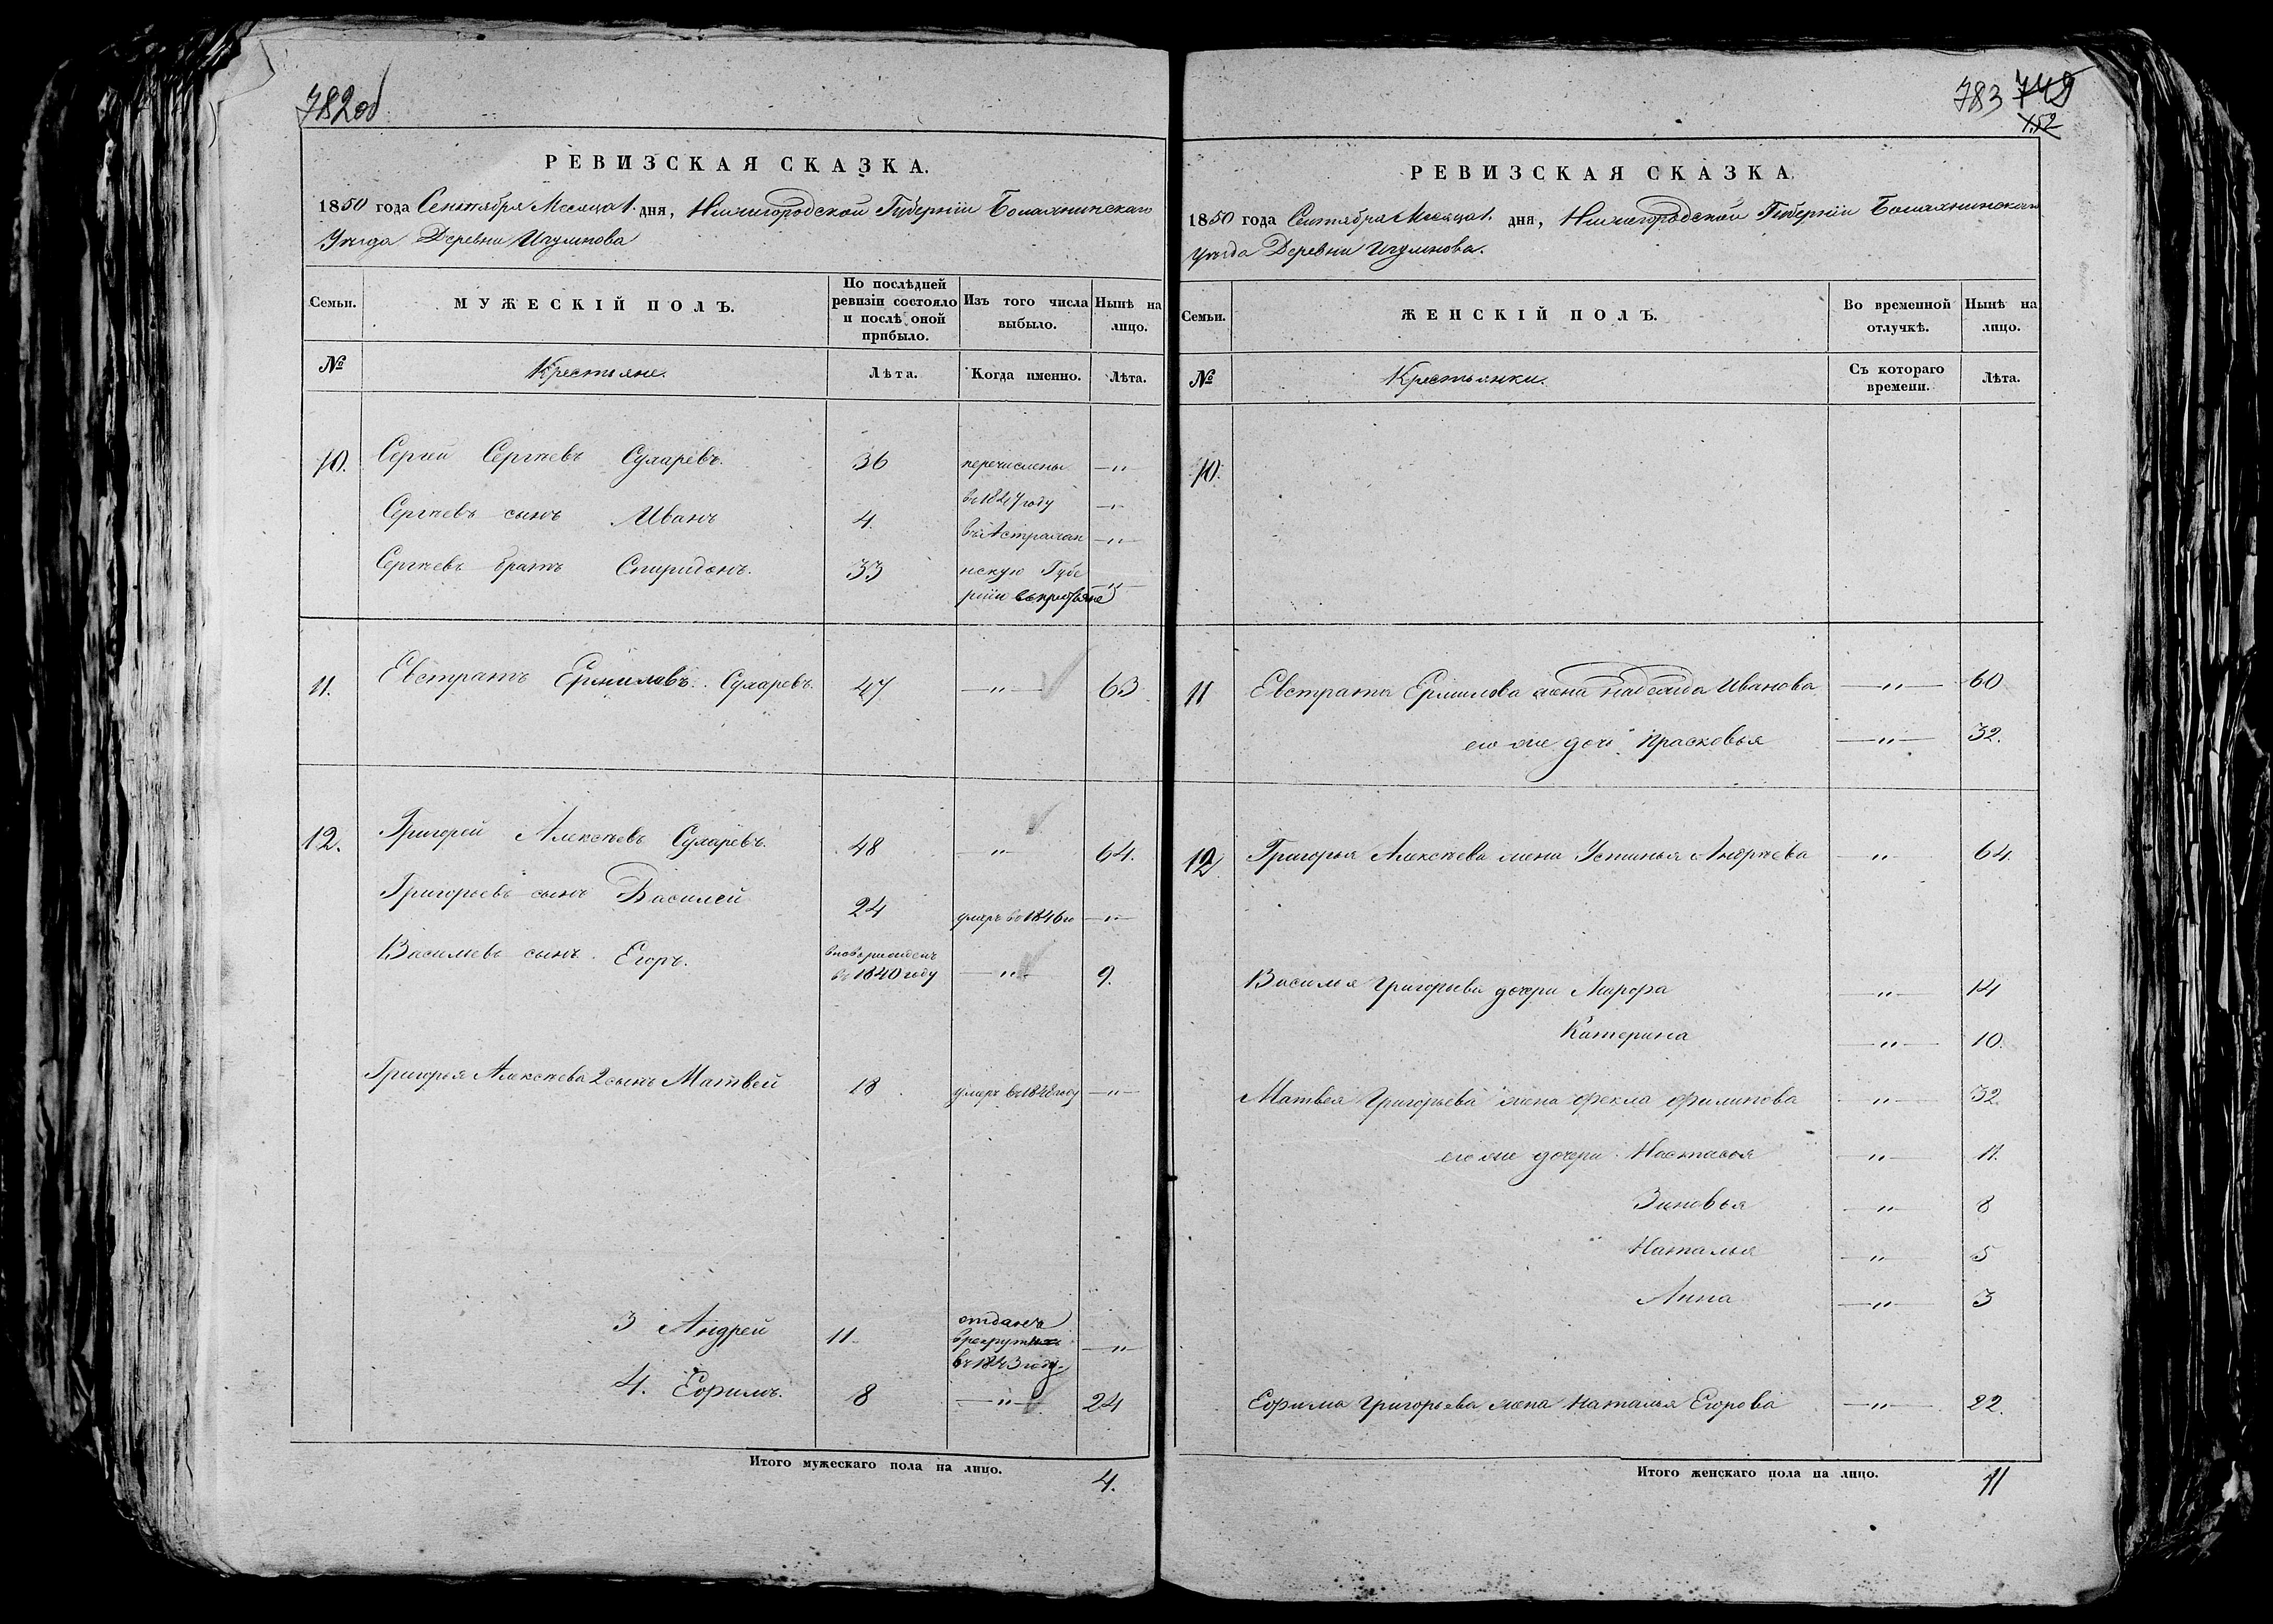 782об
РЕВИЗСКАЯ СКАЗКА.
1850 года Сентября Месяца 1. дня, Нижегородской Губернiи Болахнинскаго
Уѣзда Деревни Игумнова
Семьи.
МУЖЕСКІЙ ПОЛЪ.
По послѣдней ревизіи состояло и послѣ оной прибыло.
Изъ того числа выбыло.
Нынѣ на лицо.
№
Крестьяне.
Лѣта.
Когда именно.
Лѣта.
10. Сергей Сергѣевъ Сухаревъ. 36 перечислены —"—
въ 1847 году
Сергѣевъ сынъ Иванъ 4. —"—
въ Астрахан —"—
Сергѣевъ братъ Спиридонъ. 33 нскую Губе
рнiи въ крестьяне —"—
11. Евстратъ Ермиловъ Сухаревъ. 47 —"— 63
12. Григорей Алексѣевъ Сухаревъ. 48 —"— 64.
Григорьевъ сынъ Василей 24 умеръ въ 1846 го —"—
Васильевъ сынъ Егоръ. вновь рожденъ
въ 1840 году —"— 9.
Григорья Алексѣева 2 сынъ Матвей 18 умеръ въ 1848 году —"—
3 Андрей 11 отданъ
в рекруты
въ 1843 году. —"—
4. Ефимъ. 8 —"— 24
Итого мужескаго пола на лицо. 4.
783 749
152
РЕВИЗСКАЯ СКАЗКА.
1850 года Сентября Месяца 1. дня, Нижегородской Губернiи Болахнинскаго
Уѣзда Деревни Игумнова.
Семьи.
ЖЕНСКІЙ ПОЛЪ.
Во временной отлучкѣ.
Нынѣ на лицо.
№
Крестьянки.
Съ котораго времени.
Лѣта.
10.
11 Евстрата Ермилова жена Надежда Иванова —"— 60
его же дочь Прасковья —"— 32.
12. Григорья Алексѣева жена Устинья Андрѣева —"— 64.
Василья Григорьева дочери Марфа —"— 14
Катерина —"— 10.
Матвея Григорьева жена Фекла Филипова —"— 32.
его же дочери Настасья —"— 11.
Зиновья —"— 8
Наталья —"— 5
Анна —"— 3
Ефима Григорьева жена Наталья Егорова —"— 22.
Итого женскаго пола на лицо. 11